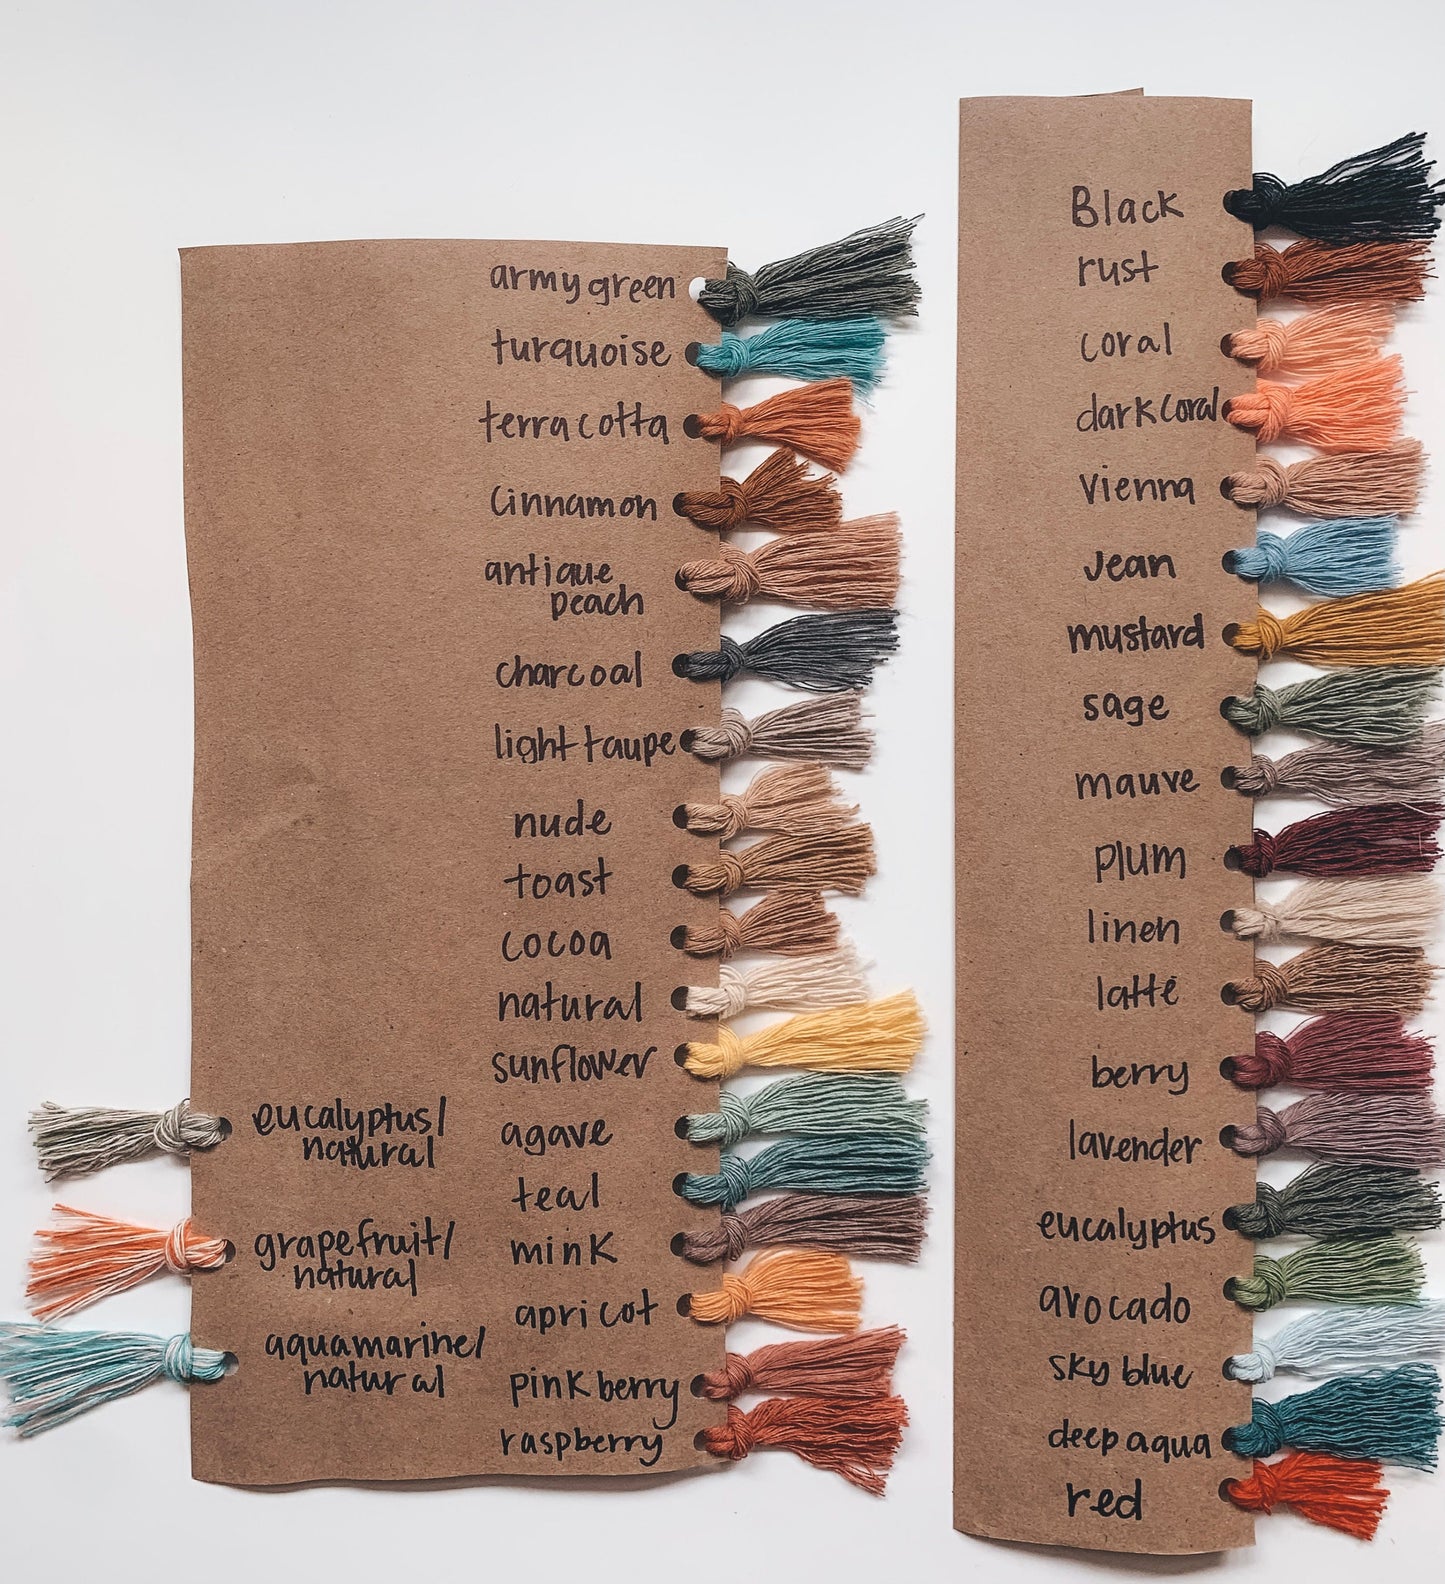 army green
turquoise
terracotta
Cinnamon
antique
peach
charcoal
light taupe
nude
toast
cocoa
natural
sunflower
agave
teal
mink
apricot
pink berry
raspberry
eucalyptus/
natural
grapefruit/
natural
aquamarine/
natural
Black
rust
coral
dark coral
Vienna
Jean
mustard
sage
mauve
plum
linen
latté
berry
lavender
eucalyptus
avocado
sky blue
deep aqua
red